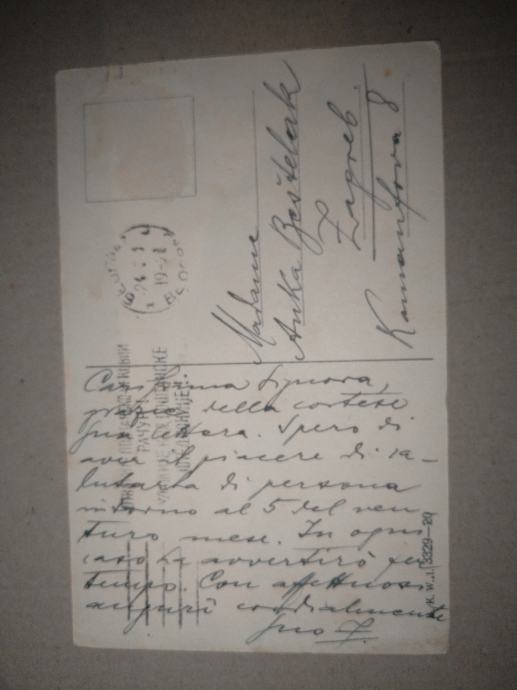 Madame
Anka Bestelak
Zagreb.
Kamaufova 8
Carissima Signora,
grazie della cortese
Sua lettera. Spero di
aver il piacere di sa-
lutarla di persona
intorno al 5 del ven
turo mese. In ogni
caso La avvertirò per
tempo. Con affettuosi
auguri cordialmente
Suo
РАЧУН
19-21
K. W. I. 3329-29